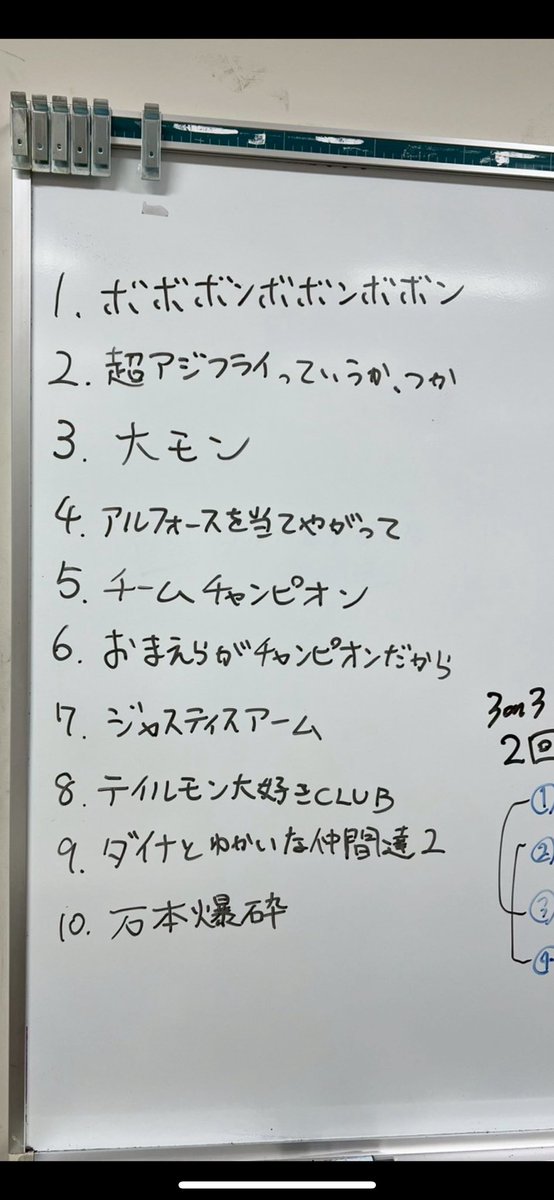 1. ボボボンボボンボボン
2. 超アジフライっていうか、つか
3. 大モン
4. アルフォースを当てやがって
5. チームチャンピオン
6. おまえらがチャンピオンだから
7. ジャスティスアーム
8. テイルモン大好きCLUB
9. ダイナとゆかいな仲間達2
10. 石本爆砕
3on3
2回
①
②
③
④